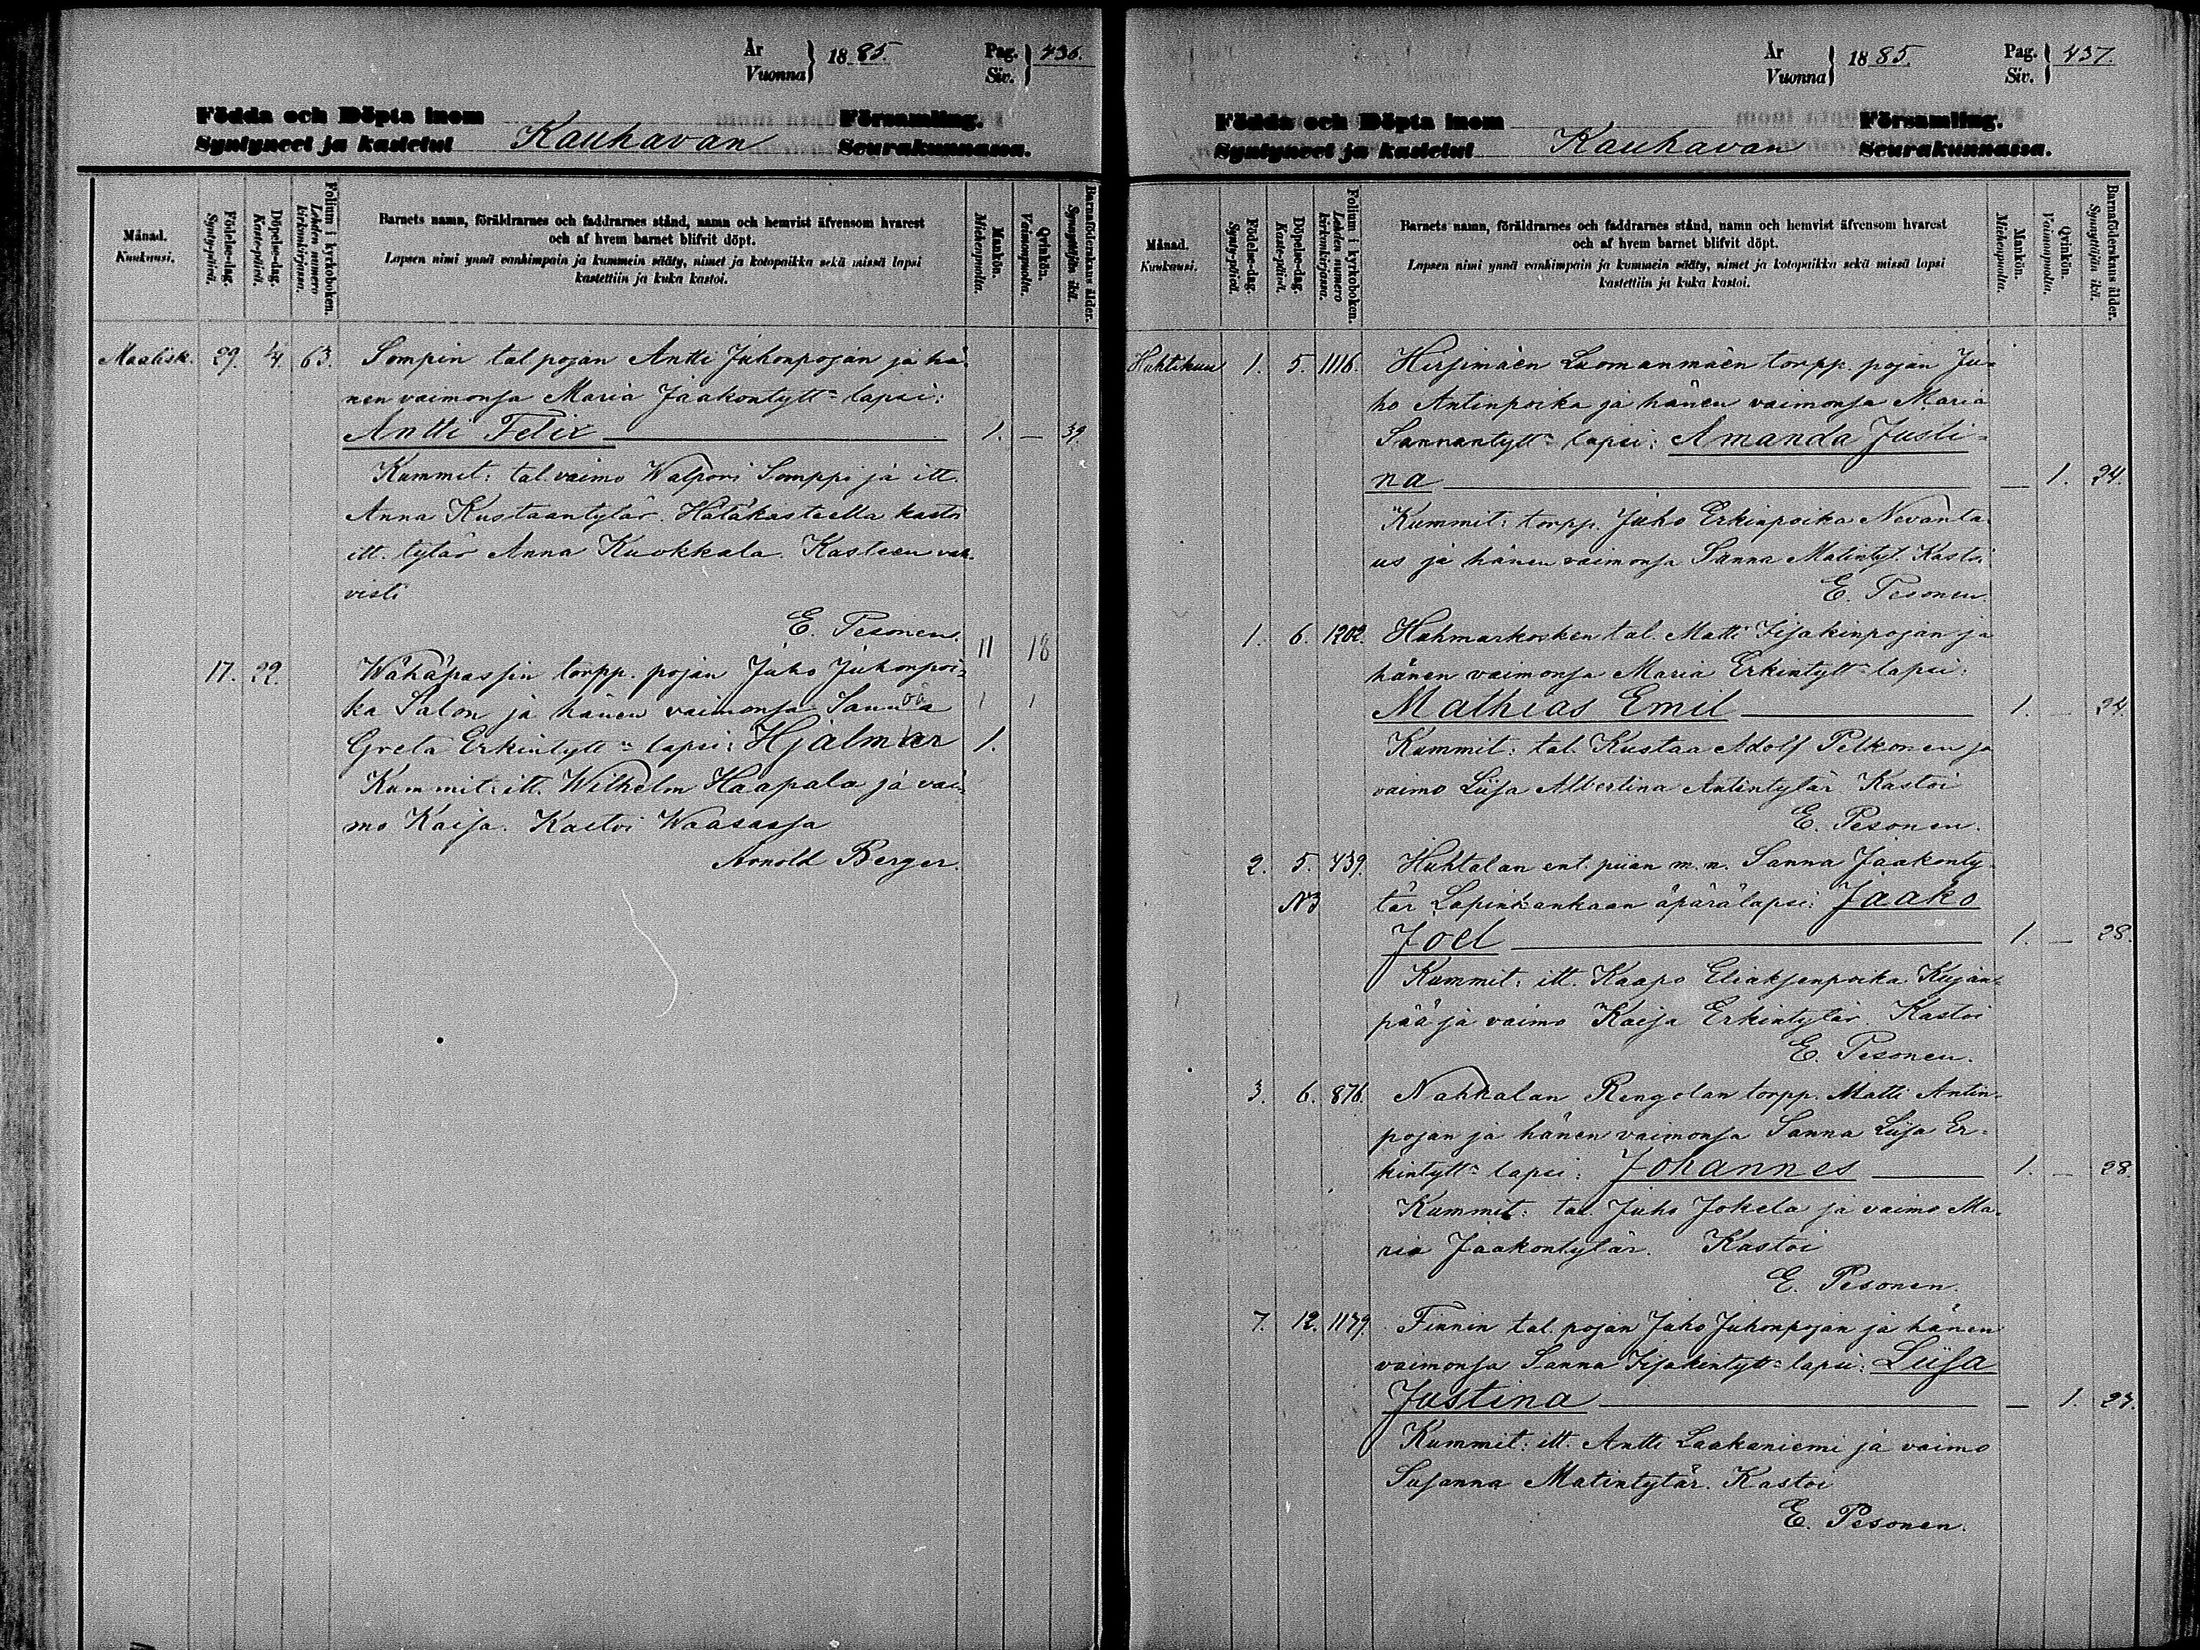 År
Vuonna } 1885. Pag.
Siv. } 436.
Födda och Döpta inom
Syntyneet ja kastetut Kauhavan Församling.
Seurakunnassa.
Månad.
Kuukausi.
Födelse-dag.
Synty-päivä.
Döpelse-dag.
Kaste-päivä.
Folium i kyrkoboken.
Lehden numero kirkonkirjassa.
Barnets namn, föräldrarnes och faddrarnes stånd, namn och hemvist äfvensom hvarest
och af hvem barnet blifvit döpt.
Lapsen nimi ynnä vanhimpain ja kummein sääty, nimet ja kotopaikka sekä missä lapsi
kastettiin ja kuka kastoi.
Mankön.
Miehenpuolta.
Qvinkön.
Vaimonpuolta.
Barnaföderskans ålder.
Synnyttäjän ikä.
Maalisk. 29. 4. 63. Sompin tal. pojan Antti Juhonpojan ja hä-
nen vaimonsa Maria Jaakontytt= lapsi:
Antti Felix 1. — 39.
Kummit: tal. vaimo Walpori Somppi ja itt.
Anna Kustaantytär. Hätäkasteella kastoi
itt. tytär Anna Kuokkala. Kasteen vah-
visti
E. Pesonen.
11 18
17. 22. Wähäpassin torpp. pojan Juho Juhonpoi-
ka Salon ja hänen vaimonsa Sanna 1 1
Greta Erkintytt= lapsi: Hjalmar 1.
Kummit: itt. Wilhelm Haapala ja vai-
mo Kaisa. Kastoi Waasassa
Arnold Berger.
År
Vuonna } 1885. Pag.
Siv. } 437.
Födda och Döpta inom
Syntyneet ja kastetut Kauhavan Församling.
Seurakunnassa.
Månad.
Kuukausi.
Födelse-dag.
Synty-päivä.
Döpelse-dag.
Kaste-päivä.
Folium i kyrkoboken.
Lehden numero kirkonkirjassa.
Barnets namn, föräldrarnes och faddrarnes stånd, namn och hemvist äfvensom hvarest
och af hvem barnet blifvit döpt.
Lapsen nimi ynnä vanhimpain ja kummein sääty, nimet ja kotopaikka sekä missä lapsi
kastettiin ja kuka kastoi.
Mankön.
Miehenpuolta.
Qvinkön.
Vaimonpuolta.
Barnaföderskans ålder.
Synnyttäjän ikä.
Huhtikuu 1. 5. 1116. Hirsimäen Luomanmäen torpp. pojan Ju-
ho Antinpoika ja hänen vaimonsa Maria
Sannantytt= lapsi: Amanda Justi-
na — 1. 24.
Kummit: torpp. Juho Erkinpoika Nevanta-
us ja hänen vaimonsa Sanna Matintyt. Kastoi
E. Pesonen.
1. 6. 1202. Hahmarkosken tal. Matti Iisakinpojan ja
hänen vaimonsa Maria Erkintytt= lapsi:
Mathias Emil 1. — 24.
Kummit: tal. Kustaa Adolf Pelkonen ja
vaimo Liisa Albertina Antintytär Kastoi
E. Pesonen.
2. 5. 439. Huhtalan ent. piian m. n. Sanna Jaakonty-
N3 tär Lapinkankaan äpärälapsi: Jaako
Joel 1. — 28.
Kummit: itt. Kaapo Eliaksenpoika Kujan-
pää ja vaimo Kaisa Erkintytär Kastoi
E. Pesonen.
3. 6. 876. Nahkalan Rengolan torpp. Matti Antin-
pojan ja hänen vaimonsa Sanna Liisa Er-
kintytt= lapsi: Johannes 1. — 28.
Kummit: tal. Juho Jokela ja vaimo Ma-
ria Jaakontytär. Kastoi
E. Pesonen.
7. 12. 1179. Finnin tal. pojan Juho Juhonpojan ja hänen
vaimonsa Sanna Iisakintytt= lapsi: Liisa
Justina — 1. 27.
Kummit: itt. Antti Laakaniemi ja vaimo
Susanna Matintytär. Kastoi
E. Pesonen.